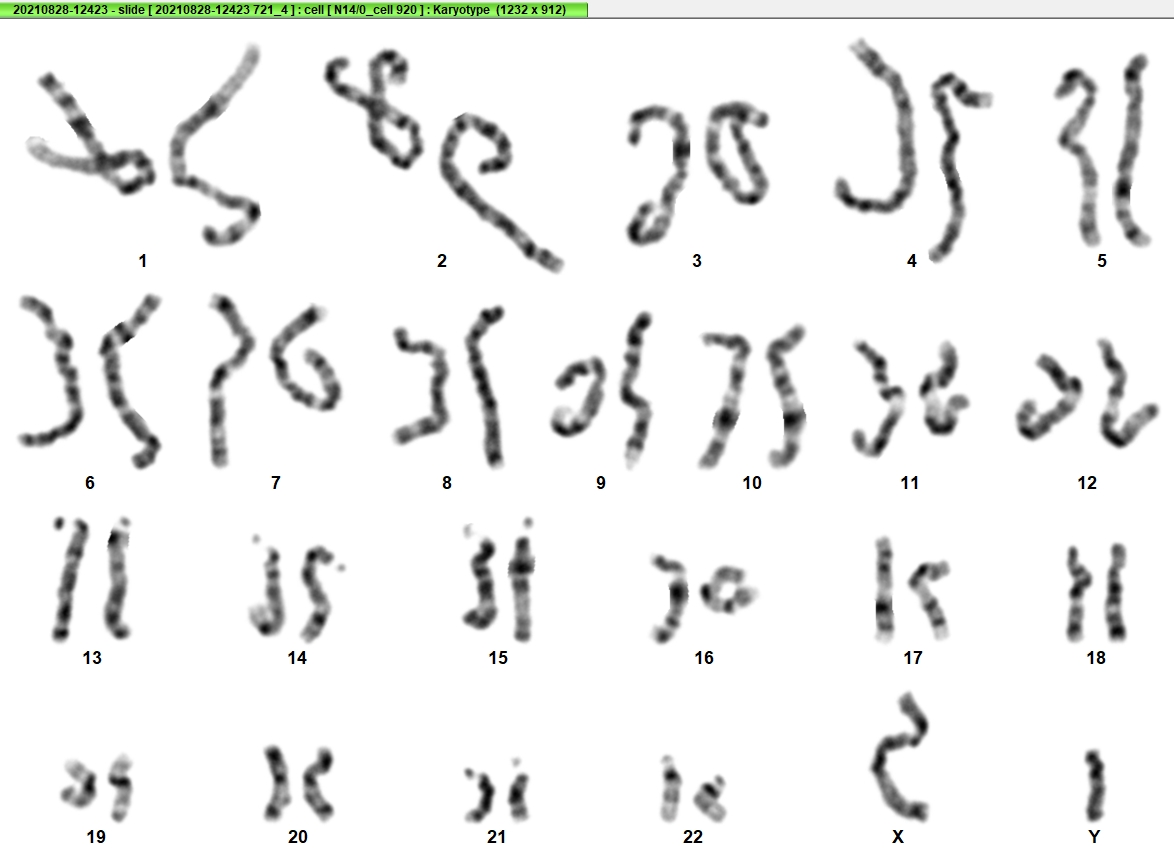 20210828-12423 - slide [ 20210828-12423 721_4 ] : cell [ N14/0_cell 920 ] : Karyotype (1232 x 912)
1 2 3 4 5
6 7 8 9 10 11 12
13 14 15 16 17 18
19 20 21 22 X Y